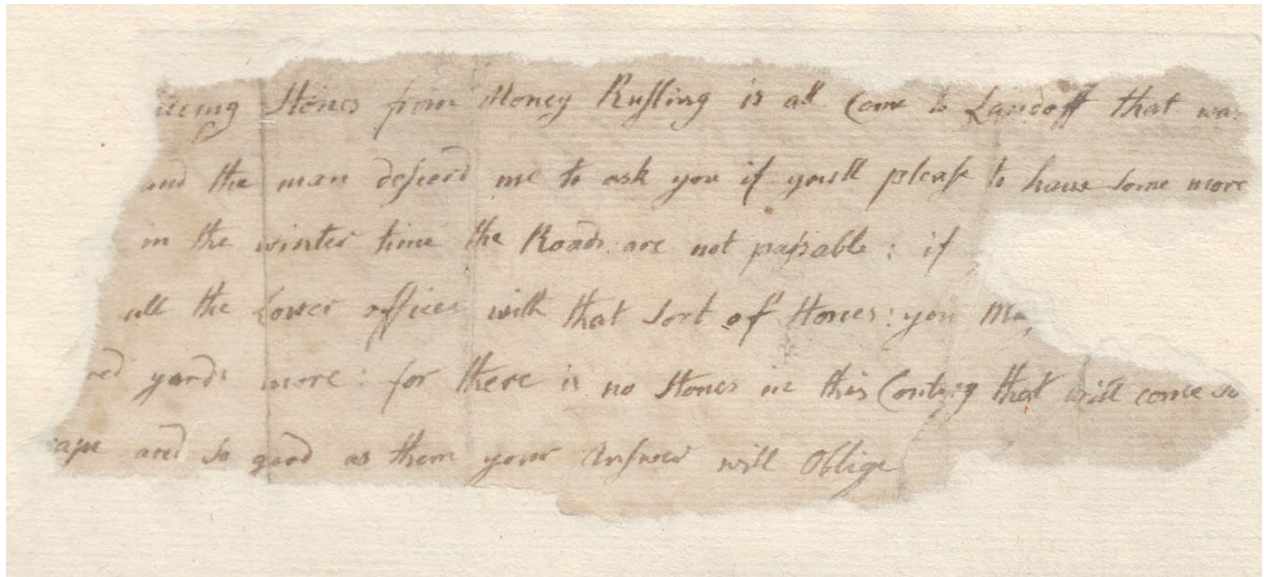 Stones from Money Rusling is all Come to Landoff that was
and the man desierd me to ask you if you'll please to have some more
in the winter time the Roads are not passable : if
all the Lower offices with that sort of Stones : you May
red yards more : for there is no Stones in this Contry that will come so
and so good as them your Answer will Oblige